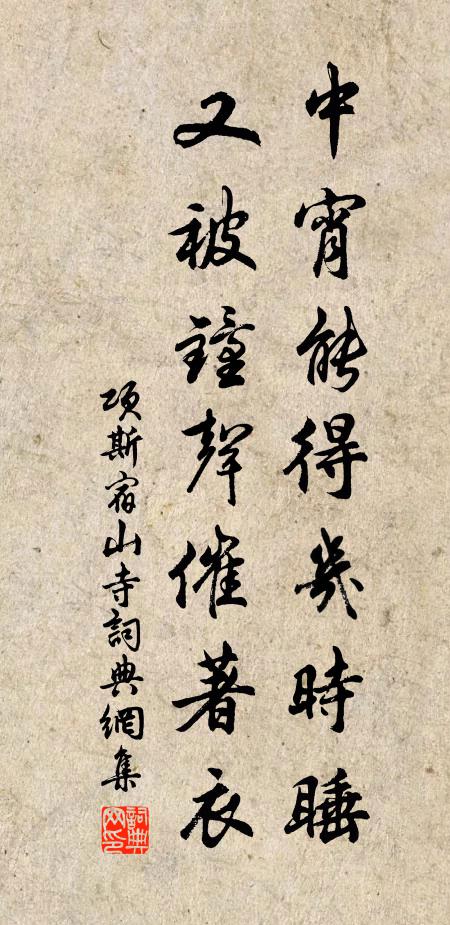 中宵能得幾時睡
又被鐘聲催著衣
項斯宿山寺詞典網集
詞典網印